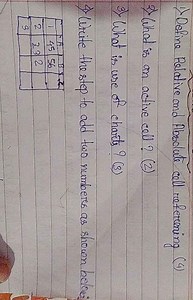 1) Define Relative and Absolute cell referencing (4)
2) What is an active cell? (2)
3) What is use of charts? (3)
4) Write the step to add two numbers as shown below
A B
1 45 56
2 23 2
3